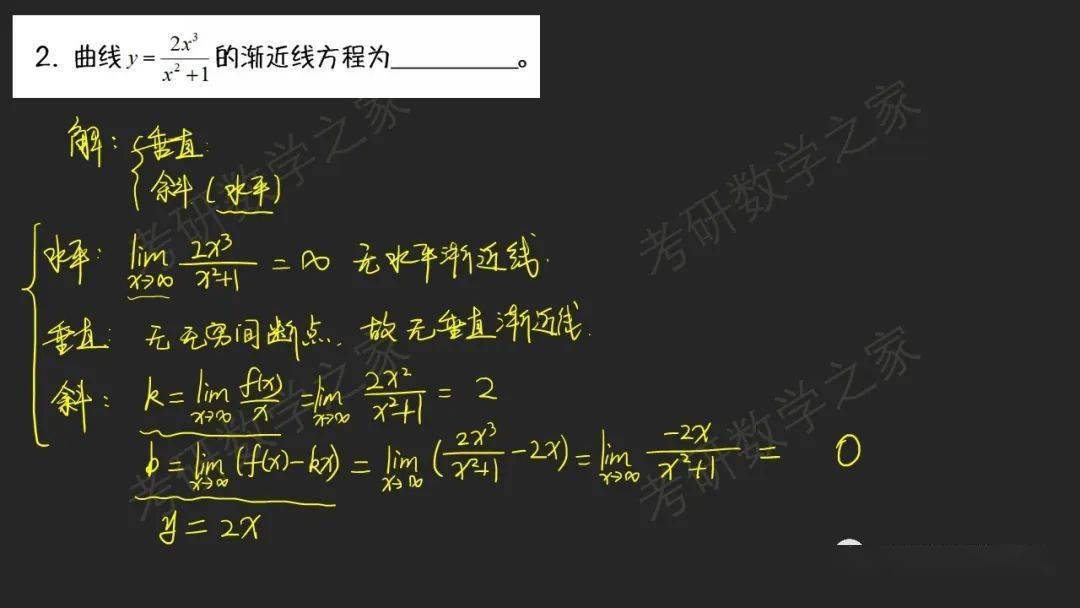 2. 曲线 y = 2x³/(x²+1) 的渐近线方程为________。
解：{垂直:
斜 (水平)
水平: lim_{x→∞} 2x³/(x²+1) = ∞ 无水平渐近线.
垂直: 无无穷间断点, 故无垂直渐近线.
斜: k = lim_{x→∞} f(x)/x = lim_{x→∞} 2x²/(x²+1) = 2
b = lim_{x→∞} (f(x)-kx) = lim_{x→∞} (2x³/(x²+1) - 2x) = lim_{x→∞} -2x/(x²+1) = 0
y = 2x
考研数学之家
考研数学之家
考研数学之家
考研数学之家